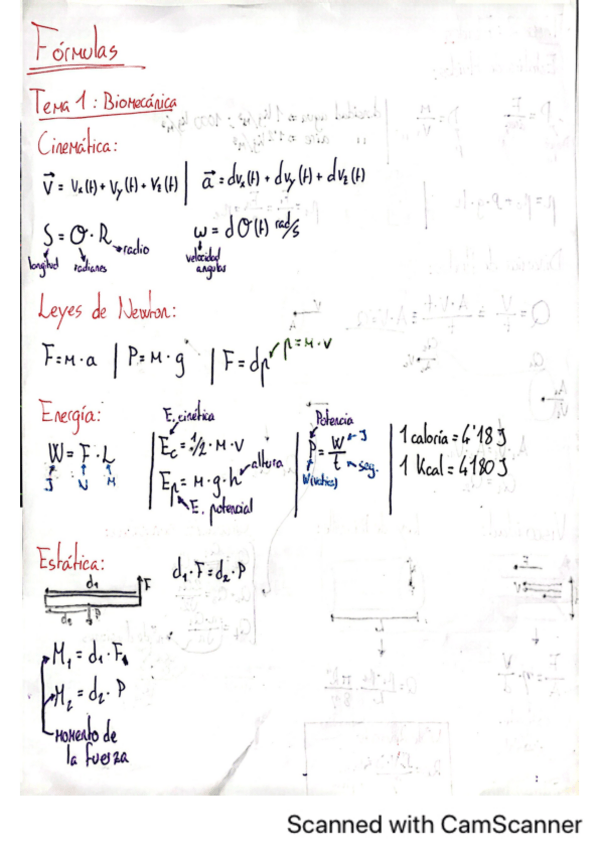 Fórmulas
Tema 1: Biomecánica
Cinemática:
v⃗ = Vx(t) + Vy(t) + Vz(t) | a⃗ = dvx(t) + dvy(t) + dvz(t)
S = Θ · R
longitud radianes radio
ω = dΘ(t) rad/s
velocidad angular
Leyes de Newton:
F = m · a | P = m · g | F = dp p = m · v
Energía:
W = F · L
J N M
E. cinética
Ec = 1/2 · m · v
Ep = m · g · h altura
E. potencial
Potencia
P = W/t J
W(vatios) seg.
1 caloría = 4'18 J
1 Kcal = 4180 J
Estática:
d1 F
d2 P
d1 · F = d2 · P
M1 = d1 · F1
M2 = d2 · P
Momento de
la fuerza
Scanned with CamScanner